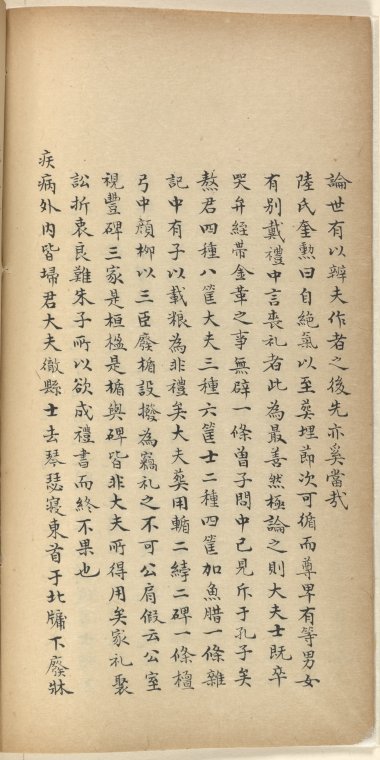 論世有以辨夫作者之後先亦奚當哉
陸氏奎勲曰自絕氣以至葬埋節次可循而尊卑有等男女
有别戴禮中言喪礼者此為最善然極論之則大夫士既卒
哭弁絰帶金革之事無辟一條曽子問中已見斥于孔子矣
熬君四種八筐大夫三種六筐士二種四筐加魚腊一條雜
記中有子以載粻為非禮矣大夫葬用輴二綍二碑一條檀
弓中顔柳以三臣廢輴設撥為竊礼之不可公肩假云公室
視豐碑三家是桓楹是輴與碑皆非大夫所得用矣家礼聚
訟折衷良難朱子所以欲成禮書而終不果也
疾病外内皆埽君大夫徹縣士去琴瑟寝東首于北牖下廢牀